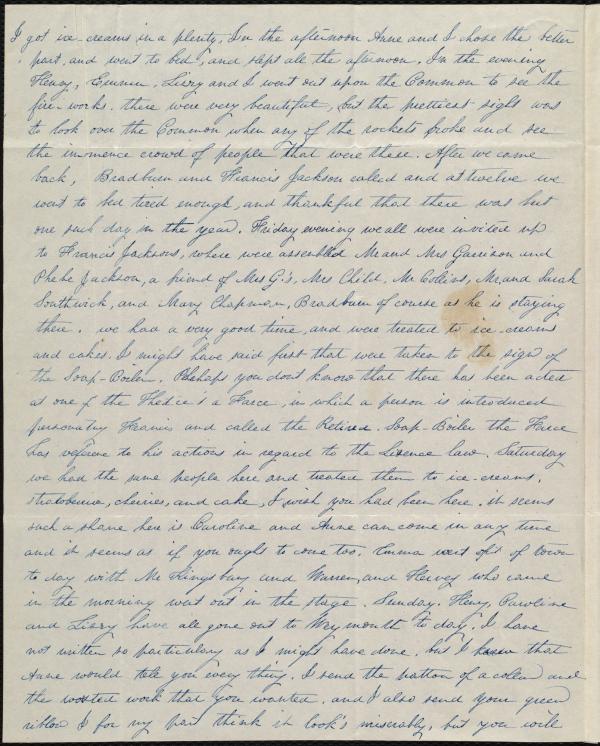 I got ice creams in a plenty. In the afternoon Anne and I chose the better
part, and went to bed, and slept all the afternoon. In the evening
Henry, Emma, Lizzy and I went out upon the Common to see the
fire-works. there were very beautiful, but the prettiest sight was
to look over the Common when any of the rockets broke and see
the immence crowd of people that were there. After we came
back, Bradburn and Francis Jackson called and at twelve we
went to bed tired enough, and thankful that there was but
one such day in the year. Friday evening we all were invited up
to Francis Jacksons, where were assembled Mr and Mrs Garrison and
Phebe Jackson, a friend of Mrs G's, Mrs Child, Mr Collins, Mr and Sarah
Southwick, and Mary Chapman, Bradburn of course as he is staying
there. we had a very good time, and were treated to ice-creams
and cakes. I might have said first that were taken to the sign of
the Soap-Boiler. Phehaps you dont know that there has been acted
at one of the Theatre's a Farce, in which a person is introduced
personating Francis and called the Retired Soap-Boiler the Farce
has refrence to his actions in regard to the License law. Saturday
we had the same people here and treated them to ice-creams,
strawberries, cherries, and cake, I wish you had been here, it seems
such a shame here is Caroline and Anne can come in any time
and it seems as if you ought to come too. Emma went off of town
to day with Mr Kingsbury and Warren, and Harvey who came
in the morning went out in the stage. Sunday. Henry, Caroline
and Lizzy have all gone out to Weymouth to day, I have
not written so particulary as I might have done, but I knew that
Anne would tell you every thing. I send the pattern of a collar and
the worsted work that you wanted, and I also send your green
ribbon I for my part think it look's miserably, but you will